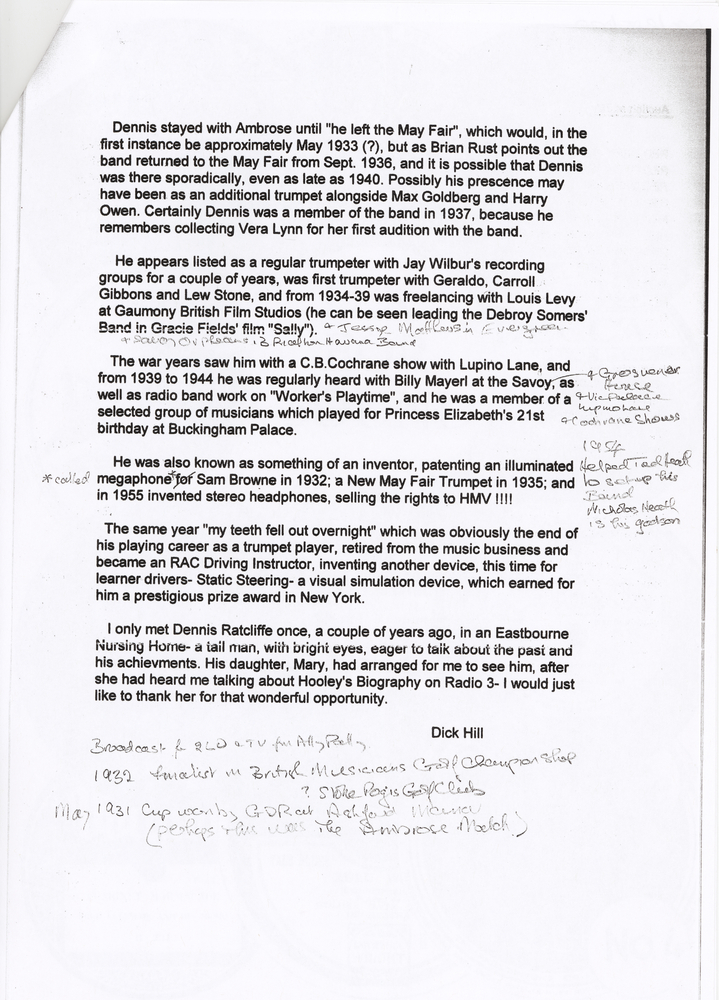 Dennis stayed with Ambrose until "he left the May Fair", which would, in the
first instance be approximately May 1933 (?), but as Brian Rust points out the
band returned to the May Fair from Sept. 1936, and it is possible that Dennis
was there sporadically, even as late as 1940. Possibly his prescence may
have been as an additional trumpet alongside Max Goldberg and Harry
Owen. Certainly Dennis was a member of the band in 1937, because he
remembers collecting Vera Lynn for her first audition with the band.
He appears listed as a regular trumpeter with Jay Wilbur's recording
groups for a couple of years, was first trumpeter with Geraldo, Carroll
Gibbons and Lew Stone, and from 1934-39 was freelancing with Louis Levy
at Gaumony British Film Studios (he can be seen leading the Debroy Somers'
Band in Gracie Fields' film "Sally"). + Jessie Matthews in Evergreen
+ Savoy Orpheans Havana Band
The war years saw him with a C.B.Cochrane show with Lupino Lane, and
from 1939 to 1944 he was regularly heard with Billy Mayerl at the Savoy, as
well as radio band work on "Worker's Playtime", and he was a member of a
selected group of musicians which played for Princess Elizabeth's 21st
birthday at Buckingham Palace.
+ Grosvenor
House
+ Vic Palace
+ Cochrane Shows
He was also known as something of an inventor, patenting an illuminated
*called megaphone* for Sam Browne in 1932; a New May Fair Trumpet in 1935; and
in 1955 invented stereo headphones, selling the rights to HMV !!!!
1954
Helped Ted Heath
to set up his
Band
Nicholas Heath
is his godson
The same year "my teeth fell out overnight" which was obviously the end of
his playing career as a trumpet player, retired from the music business and
became an RAC Driving Instructor, inventing another device, this time for
learner drivers- Static Steering- a visual simulation device, which earned for
him a prestigious prize award in New York.
I only met Dennis Ratcliffe once, a couple of years ago, in an Eastbourne
Nursing Home- a tall man, with bright eyes, eager to talk about the past and
his achievments. His daughter, Mary, had arranged for me to see him, after
she had heard me talking about Hooley's Biography on Radio 3- I would just
like to thank her for that wonderful opportunity.
Dick Hill
Broadcast for 2LO + TV from Ally Pally
1932 finalist in British Musicians Golf Championship
? Stoke Pogis Golf Club
May 1931 Cup won by GDR at Ashford Manor
(perhaps this was the Ambrose Match)